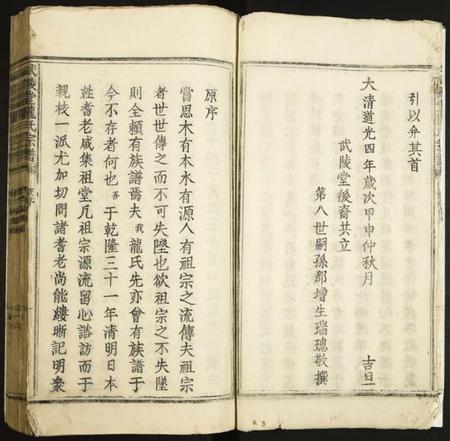 引以弁其首
大清道光四年歲次甲申仲秋月 吉旦
武陵堂後裔共立
第八世嗣孫郡增生瑞璁敬撰
原序
嘗思木有本水有源人有祖宗之流傳夫祖宗
者世世傳之而不可失墜也欲祖宗之不失墜
則全賴有族譜焉夫我龍氏先亦曾有族譜于
今不存者何也吾于乾隆三十一年清明日本
姓耆老咸集祖堂凡祖宗源流留心諮訪而于
親枝一派尤加切問諸耆老尚能縷晰記明衆
武陵堂龍氏宗譜